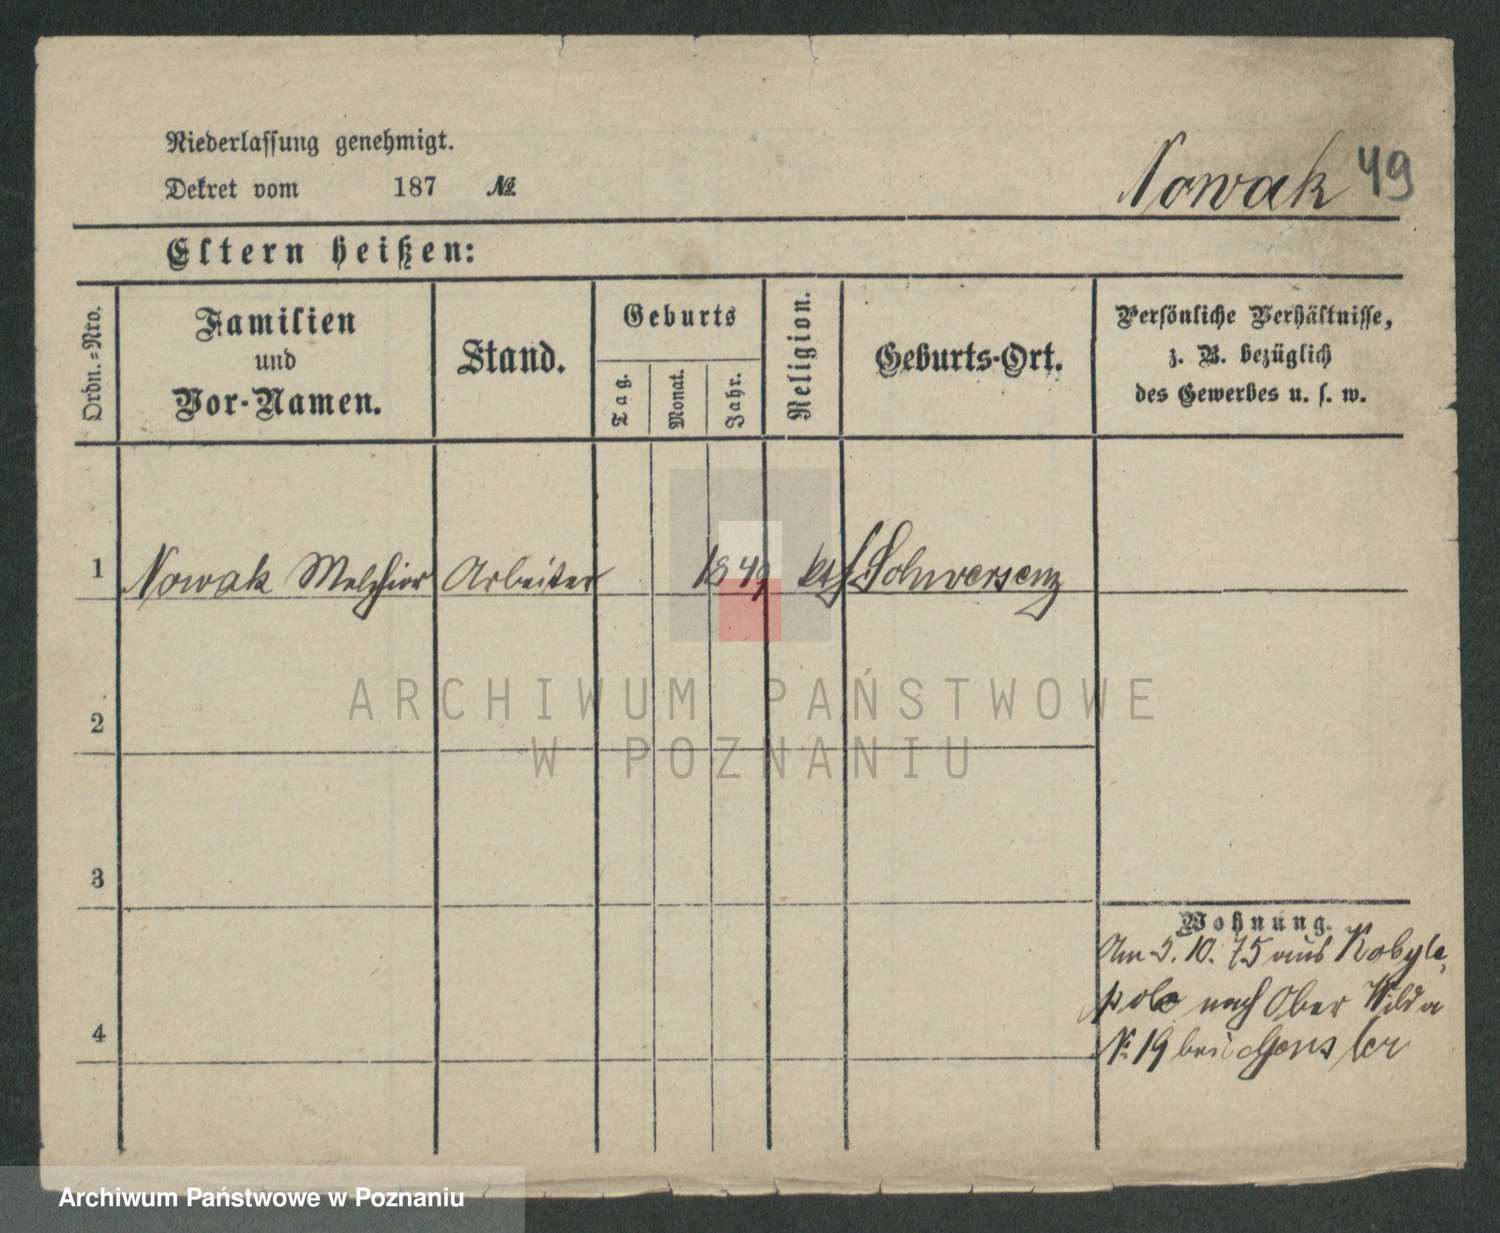 Niederlassung genehmigt.
Dekret vom 187 №
Nowak 49
Eltern heißen:
Ordn.=Nro.
Familien
und
Vor-Namen.
Stand.
Geburts
Tag.
Monat.
Jahr.
Religion.
Geburts-Ort.
Persönliche Verhältnisse,
z. B. bezüglich
des Gewerbes u. s. w.
1 Nowak Melchior Arbeiter 1849 kath Schwersenz
2
3
4
Wohnung.
Am 5. 10. 75 aus Kobyle,
pole nach Ober Wilda
№ 19 bei
ARCHIWUM PAŃSTWOWE
W POZNANIU
Archiwum Państwowe w Poznaniu